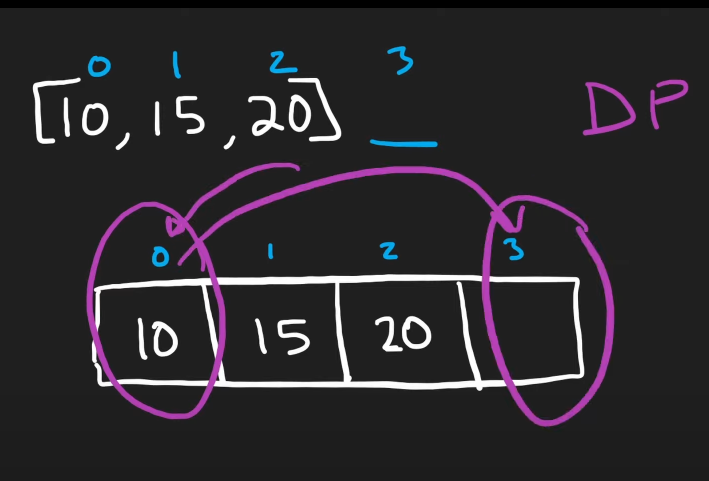 0 1 2 3
[10, 15, 20] _ DP
0 1 2 3
10 15 20